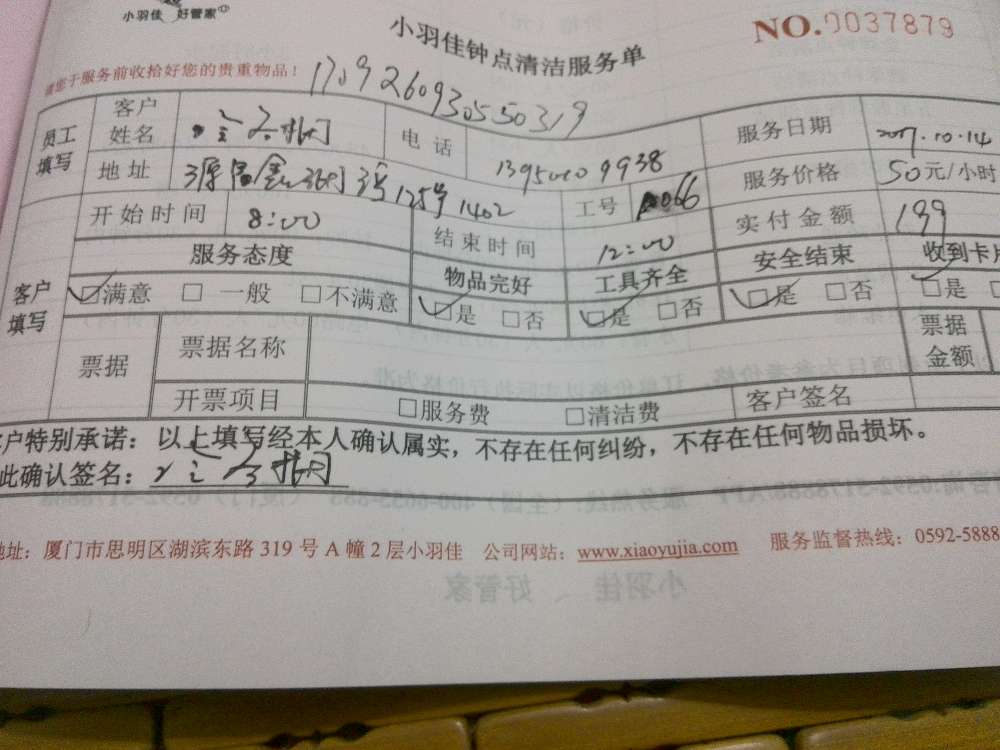 小羽佳 好管家
小羽佳钟点清洁服务单
NO.0037879
请您于服务前收拾好您的贵重物品！
1709260930550319
员工填写
客户姓名
电话
服务日期 2017.10.14
地址 125号1402
1395000 9938
工号 066
服务价格 50元/小时
开始时间 8:00
结束时间 12:00
实付金额 199
服务态度 物品完好 工具齐全 安全结束 收到卡片
客户填写
☑满意 □一般 □不满意 ☑是 □否 ☑是 □否 ☑是 □否 ☑是
票据 票据名称 票据金额
开票项目 □服务费 □清洁费 客户签名
客户特别承诺：以上填写经本人确认属实，不存在任何纠纷，不存在任何物品损坏。
此确认签名：
地址：厦门市思明区湖滨东路 319 号 A 幢 2 层小羽佳 公司网站：www.xiaoyujia.com 服务监督热线：0592-5888